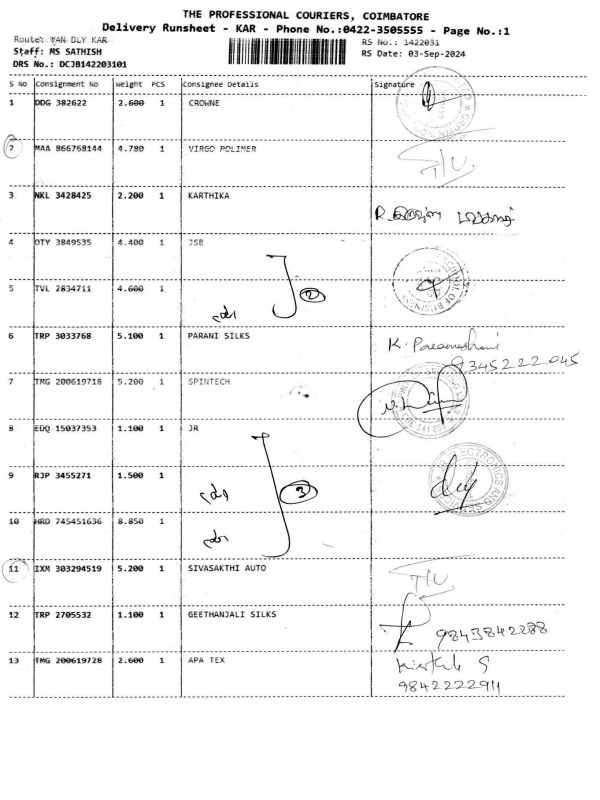 THE PROFESSIONAL COURIERS, COIMBATORE
Delivery Runsheet - KAR - Phone No.:0422-3505555 - Page No.:1
Route: VAN DLY KAR
RS No.: 1422031
Staff: MS SATHISH
RS Date: 03-Sep-2024
DRS No.: DCJB142203101
S No Consignment No Weight PCS Consignee Details Signature
1 DDG 382622 2.600 1 CROWNE
2 MAA 866768144 4.780 1 VIRGO POLIMER T/U.
3 NKL 3428425 2.200 1 KARTHIKA
4 OTY 3849535 4.400 1 JSB
5 TVL 2834711 4.600 1 2
6 TRP 3033768 5.100 1 PARANI SILKS K.
9345222045
7 TMG 200619718 5.200 1 SPINTECH
8 EDQ 15037353 1.100 1 JR
9 RJP 3455271 1.500 1 3
10 HRD 745451636 8.850 1
11 IXM 303294519 5.200 1 SIVASAKTHI AUTO T/U.
12 TRP 2705532 1.100 1 GEETHANJALI SILKS 9843842288
13 TMG 200619728 2.600 1 APA TEX
9842222911